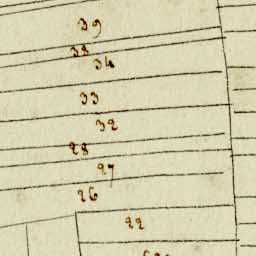 39
38
34
33
32
28
27
26
22